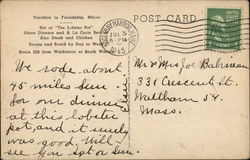 Vacation in Friendship, Maine
Eat at "The Lobster Pot"
Shore Dinners and A La Carte
Also Steak and Chicken
Rooms and Board by Day or Week
Route 220 from Waldoboro or South
POST CARD
JUL 3
We rode about
45 miles Sun.
for our dinner
at this lobster
pot, and it surely
was good. Will
see you Sat or Sun.
Mr & Mrs Joe Babineau
331 Crescent St.
Waltham 54.
Mass.